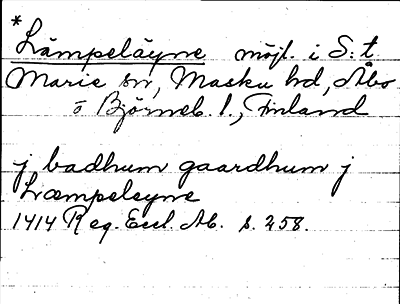 *
Lämpeläyne möjl. i S:t
Marie sn, Masku hd, Åbo
o Björneb. l., Finland
j badhum gaardhum j
Læmpeleyne
1414 Reg. Eccl. Ab. s. 258.